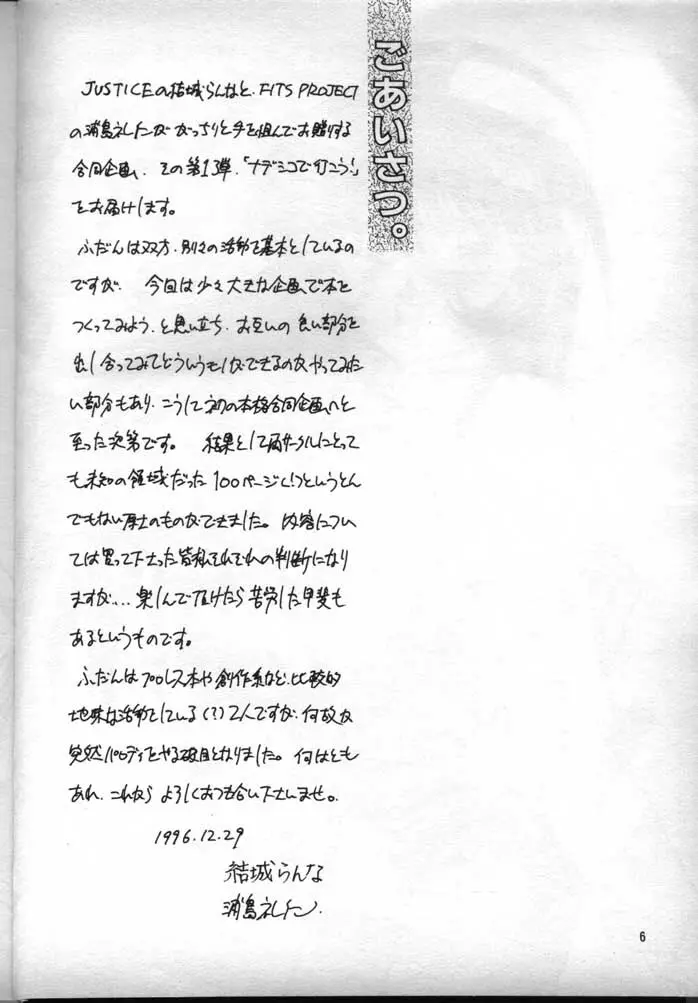 ごあいさつ。
JUSTICEの結城らんなと、FITS PROJECT
の浦島礼仁がガッちりと手を組んでお贈りする
合同企画、その第1弾、「ナデシコで行こう!」
をお届けします。
ふだんは双方、別々の活動を基本としているの
ですが、今回は少々大きな企画で本を
つくってみよう、と思い立ち、お互いの良い部分を
出し合ってみてどういうものができるのかやってみた
い部分もあり、こうして初の本格合同企画へと
至った次第です。結果として両サークルにとって
も未知の領域だった100ページ(!)というとん
でもない厚さのものができました。内容につい
ては買って下さった皆様それぞれの判断になり
ますが…、楽しんで頂けたら苦労した甲斐も
あるというものです。
ふだんはプロレス本や創作系など、比較的
地味な活動をしている(?)2人ですが、何故か
突然パロディをやる破目となりました。何はとも
あれ、これから よろしくおつき合い下さいませ。
1996.12.29
結城らんな
浦島
6